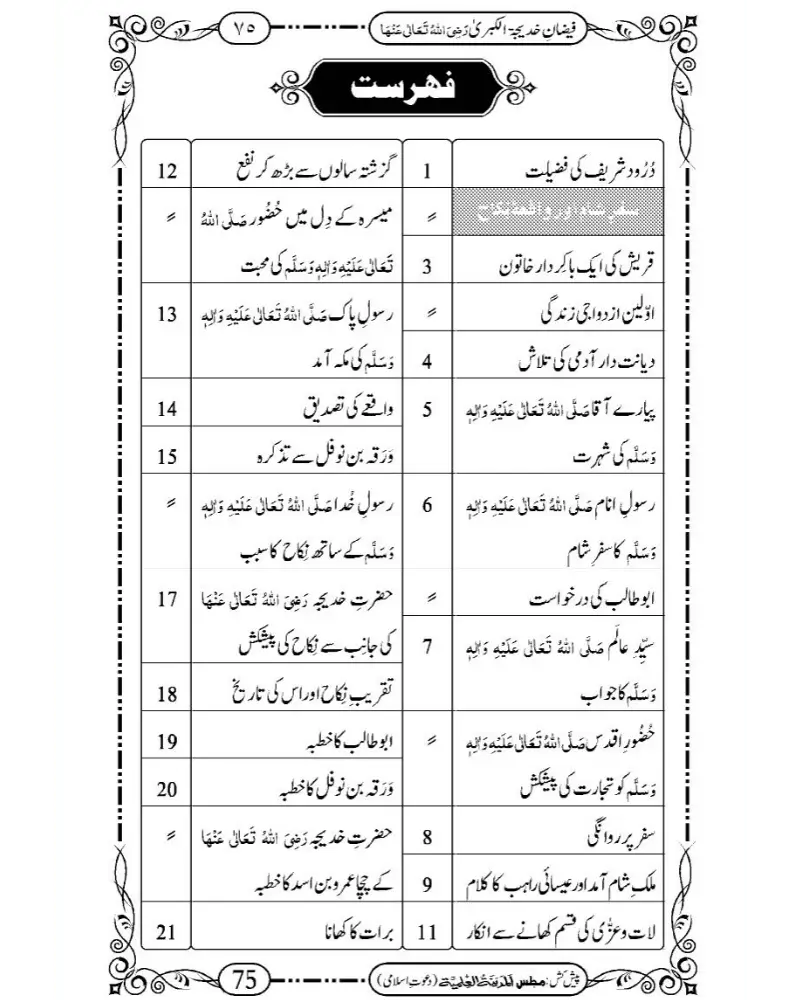 فیضانِ خدیجۃ الکبریٰ رَضِیَ اللہُ تَعَالٰی عَنْہَا
۷۵
فہرست
دُرُود شریف کی فضیلت 1
سفرِ شام اور واقعۂ نکاح 〃
قریش کی ایک باکردار خاتون 3
اوّلین ازدواجی زندگی 〃
دیانت دار آدمی کی تلاش 4
پیارے آقا صَلَّی اللہُ تَعَالٰی عَلَیْہِ وَاٰلِہٖ 5
وَسَلَّم کی شہرت
رسولِ انام صَلَّی اللہُ تَعَالٰی عَلَیْہِ وَاٰلِہٖ 6
وَسَلَّم کا سفرِ شام
ابوطالب کی درخواست 〃
سیِّدِ عالَم صَلَّی اللہُ تَعَالٰی عَلَیْہِ وَاٰلِہٖ 7
وَسَلَّم کا جواب
حُضُورِ اقدس صَلَّی اللہُ تَعَالٰی عَلَیْہِ وَاٰلِہٖ 〃
وَسَلَّم کو تجارت کی پیشکش
سفر پر روانگی 8
ملکِ شام آمد اور عیسائی راہب کا کلام 9
لات و عزّٰی کی قسم کھانے سے انکار 11
گزشتہ سالوں سے بڑھ کر نفع 12
میسرہ کے دِل میں حُضُور صَلَّی اللہُ 〃
تَعَالٰی عَلَیْہِ وَاٰلِہٖ وَسَلَّم کی محبت
رسولِ پاک صَلَّی اللہُ تَعَالٰی عَلَیْہِ وَاٰلِہٖ 13
وَسَلَّم کی مکہ آمد
واقعے کی تصدیق 14
وَرَقہ بن نوفل سے تذکرہ 15
رسولِ خُدا صَلَّی اللہُ تَعَالٰی عَلَیْہِ وَاٰلِہٖ 〃
وَسَلَّم کے ساتھ نِکاح کا سبب
حضرتِ خدیجہ رَضِیَ اللہُ تَعَالٰی عَنْہَا 17
کی جانِب سے نِکاح کی پیشکش
تقریبِ نِکاح اور اس کی تاریخ 18
ابوطالب کا خطبہ 19
وَرَقہ بن نوفل کا خطبہ 20
حضرتِ خدیجہ رَضِیَ اللہُ تَعَالٰی عَنْہَا 〃
کے چچا عمرو بن اسد کا خطبہ
برات کا کھانا 21
پیش کش: مجلس المدینۃ العلمیۃ (دعوتِ اسلامی)
75